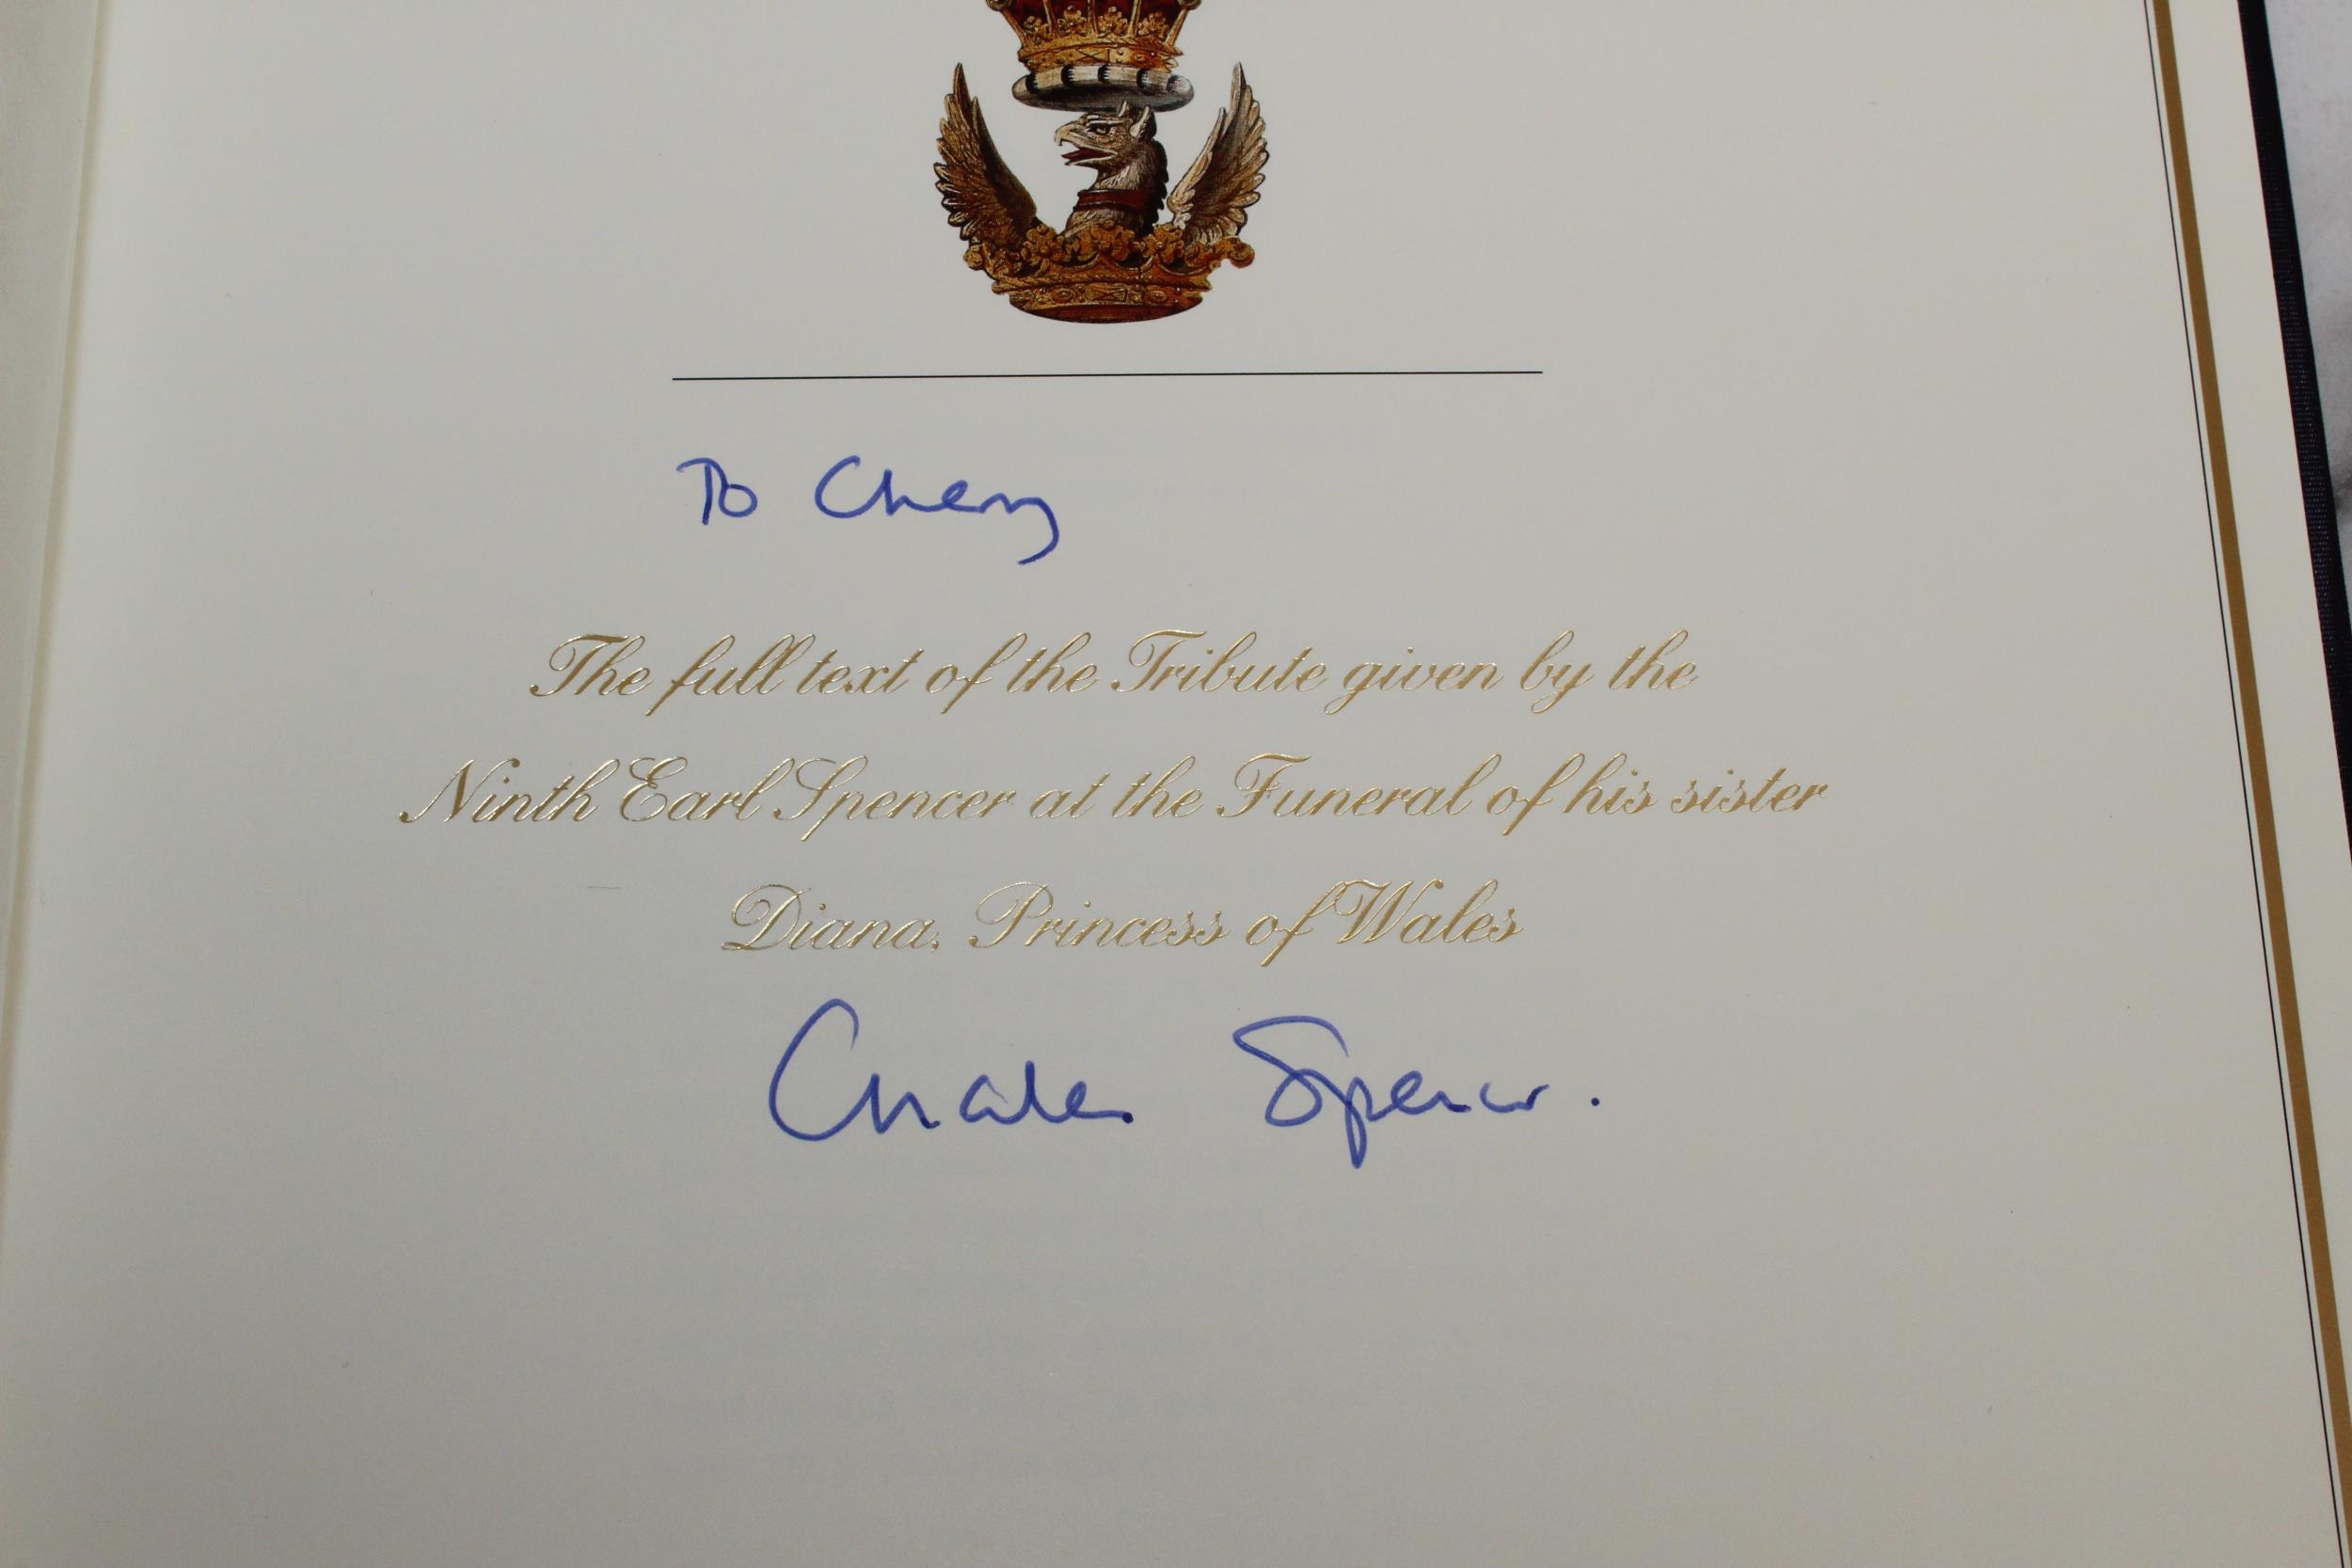 To Cherry
The full text of the Tribute given by the
Ninth Earl Spencer at the Funeral of his sister
Diana, Princess of Wales
Charles Spencer.